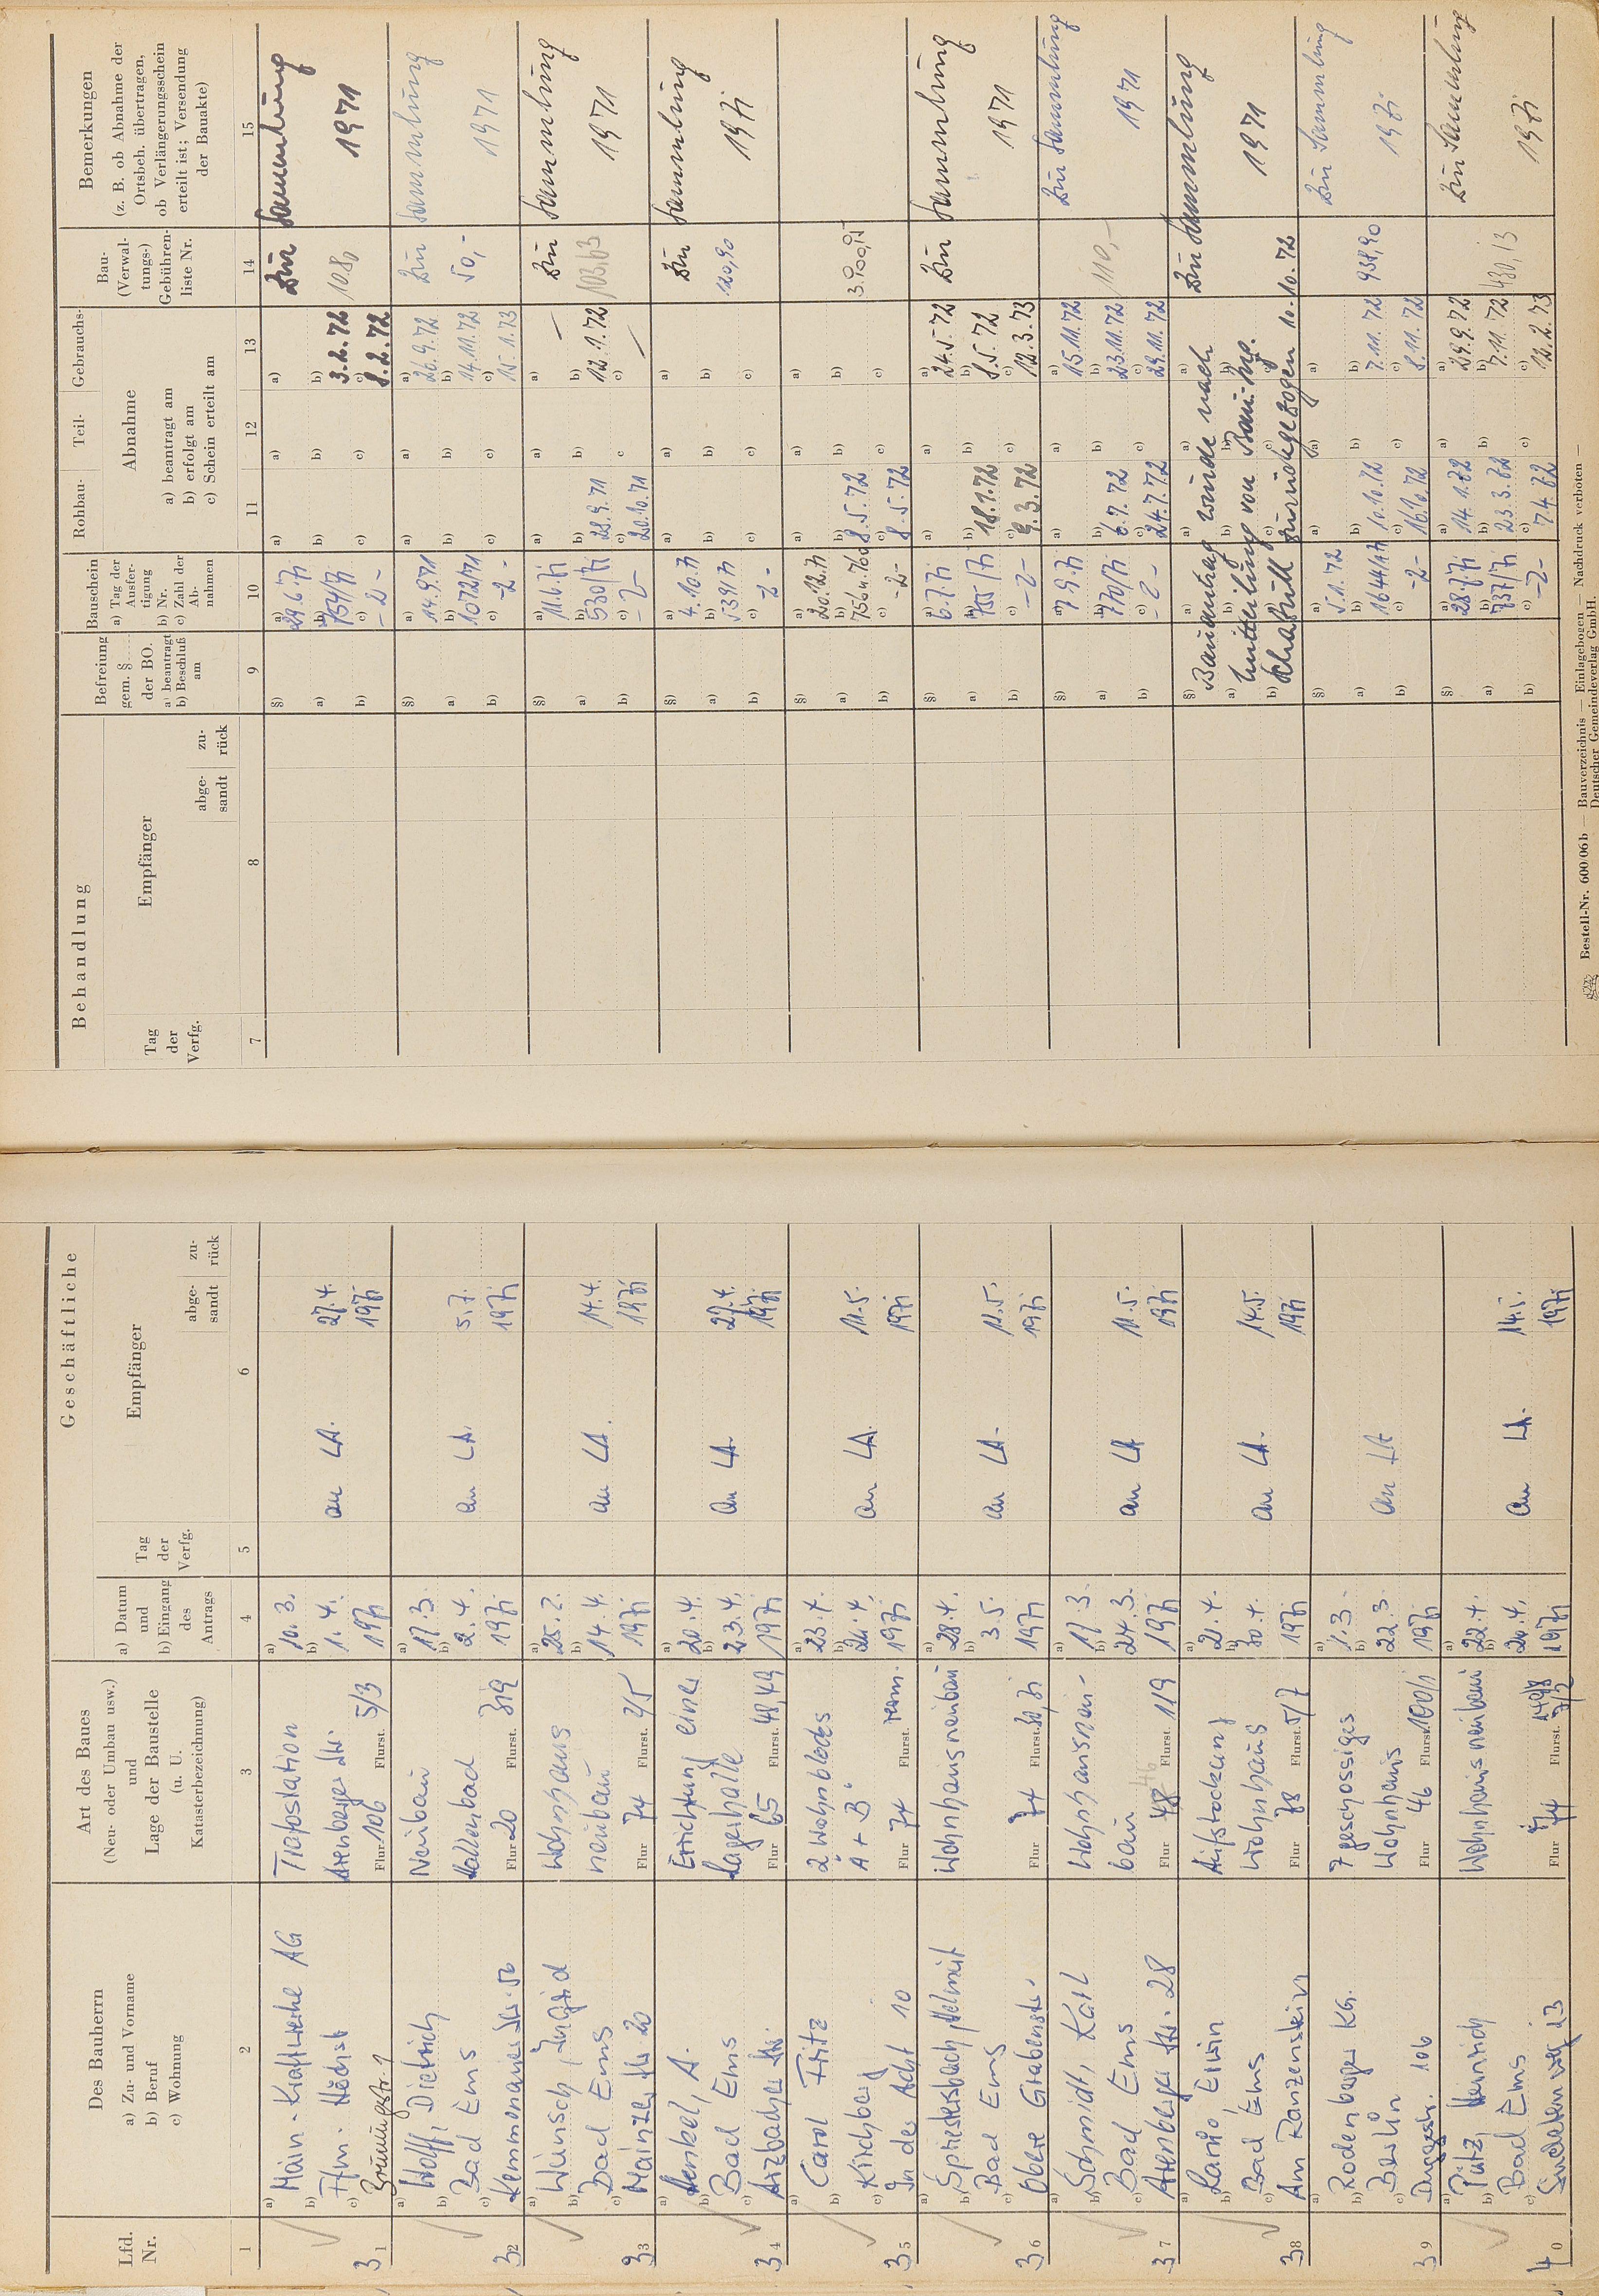 Geschäftliche
Lfd. Nr.
Des Bauherrn
a) Zu- und Vorname
b) Beruf
c) Wohnung
Art des Baues
(Neu- oder Umbau usw.)
und
Lage der Baustelle
(u. U.
Katasterbezeichnung)
a) Datum
und
b) Eingang
des
Antrags
Tag
der
Verfg.
Empfänger
abge-
sandt
zu-
rück
1 2 3 4 5 6
31
a) Main-Kraftwerke AG
b) Ffm. Höchst
c) Brüningstr. 1
Trafostation
Arenberger Str.
Flur 106 Flurst. 5/3
a) 10. 3.
b) 1. 4.
1971
an LA.
27. 4.
1971
32
a) Wolff, Dietrich
b) Bad Ems
c) Kemmenauer Str. 50
Neubau
Hallenbad
Flur 20 Flurst. 319
a) 17. 3.
b) 2. 4.
1971
an LA.
5. 7.
1971
33
a) Wünsch, Ingrid
b) Bad Ems
c) Mainzer Str. 20
Wohnhaus
neubau
Flur 74 Flurst. 7/5
a) 25. 2.
b) 14. 4.
1971
an LA.
14. 4.
1971
34
a) Henkel, A.
b) Bad Ems
c) Arzbacher Str.
Errichtung einer
Lagerhalle
Flur 65 Flurst. 48,49
a) 20. 4.
b) 23. 4.
1971
an LA.
27. 4.
1971
35
a) Carol Fritz
b) Kirchberg
c) In der Acht 10
2 Wohnblocks
A + B
Flur 74 Flurst. verm.
a) 23. 4.
b) 26. 4.
1971
an LA.
11. 5.
1971
36
a) Spriestersbach, Helmut
b) Bad Ems
c) Obere Grabenstr.
Wohnhausneubau
Flur 74 Flurst.
a) 28. 4.
b) 3. 5.
1971
an LA.
11. 5.
1971
37
a) Schmidt, Karl
b) Bad Ems
c) Arenberger Str. 28
Wohnhausneu-
bau
Flur 48 46 Flurst. 119
a) 17. 3.
b) 24. 3.
1971
an LA
11. 5.
1971
38
a) Erwin
b) Bad Ems
c) Am Ranzenstein
Aufstockung
Wohnhaus
Flur 78 Flurst. 5/7
a) 21. 4.
b) 30. 4.
1971
an LA.
14. 5.
1971
39
a) Rodenberger KG.
b) Berlin
c) 106
7 geschossiges
Wohnhaus
Flur 46 Flurst. 100/1
a) 1. 3.
b) 22. 3.
1971
an LA
40
a) Pütz, Heinrich
b) Bad Ems
c) Lindenweg 23
Wohnhausneubau
Flur 74 Flurst.
a) 22. 4.
b) 26. 4.
1971
an LA.
14. 5.
1971
Behandlung
Tag
der
Verfg.
Empfänger
abge-
sandt
zu-
rück
Befreiung
gem. §......
der BO.
a) beantragt
b) Beschluß
am
Bauschein
a) Tag der
Ausfer-
tigung
b) Nr.
c) Zahl der
Ab-
nahmen
Rohbau- Teil- Gebrauchs-
Abnahme
a) beantragt am
b) erfolgt am
c) Schein erteilt am
Bau-
(Verwal-
tungs-)
Gebühren-
liste Nr.
Bemerkungen
(z. B. ob Abnahme der
Ortsbeh. übertragen,
ob Verlängerungsschein
erteilt ist; Versendung
der Bauakte)
7 8 9 10 11 12 13 14 15
§) a) b)
a) 29. 6. 71
b) 754/71
c) - 2 -
a) b) c)
a) b) c)
a)
b) 3. 2. 72
c) 8. 2. 72
10.80
Zur Sammlung
1971
§) a) b)
a) 14. 9. 71
b) 1072/71
c) - 2 -
a) b) c)
a) b) c)
a) 26. 9. 72
b) 14. 11. 72
c) 15. 1. 73
50,-
Zur Sammlung
1971
§) a) b)
a) 11. 6. 71
b) 530/71
c) - 2 -
a)
b) 28. 9. 71
c) 20. 10. 71
a) b) c
a) —
b) 12. 1. 72
c) —
103,63
Zur Sammlung
1971
§) a) b)
a) 4. 10. 71
b) 539/71
c) - 2 -
a) b) c)
a) b) c)
a) b) c)
120,90
Zur Sammlung
1971
§) a) b)
a) 20. 12. 71
b)
c) - 2 -
a)
b) 8. 5. 72
c) 8. 5. 72
a) b) c)
a) b) c)
§) a) b)
a) 6. 7. 71
b) 755/71
c) - 2 -
a)
b) 18. 1. 72
c) 9. 3. 72
a) b) c)
a) 24. 5. 72
b) 5. 5. 72
c) 12. 3. 73
Zur Sammlung
1971
§) a) b)
a) 7. 9. 71
b) 770/71
c) - 2 -
a)
b) 6. 7. 72
c) 24. 7. 72
a) b) c)
a) 15. 11. 72
b) 23. 11. 72
c) 29. 11. 72
110,-
Zur Sammlung
1971
§) Bauantrag wurde nach
a) Mitteilung von Bau-Ing.
b) Schaffull zurückgezogen 10. 10. 72
Zur Sammlung
1971
§) a) b)
a) 5. 1. 72
b) 1644/71
c) - 2 -
a)
b) 10. 10. 72
c) 16. 10. 72
a) b) c)
a)
b) 7. 11. 72
c) 8. 11. 72
938,90
Zur Sammlung
1971
§) a) b)
a) 28. 7. 71
b) 737/71
c) - 2 -
a) 14. 1. 72
b) 23. 3. 72
c) 7. 4. 72
a) b) c)
a) 29. 9. 72
b) 7. 11. 72
c) 12. 2. 73
480,13
Zur Sammlung
1971
Bestell-Nr. 600/06 b — Bauverzeichnis — Einlagebogen — Nachdruck verboten —
Deutscher Gemeindeverlag GmbH.